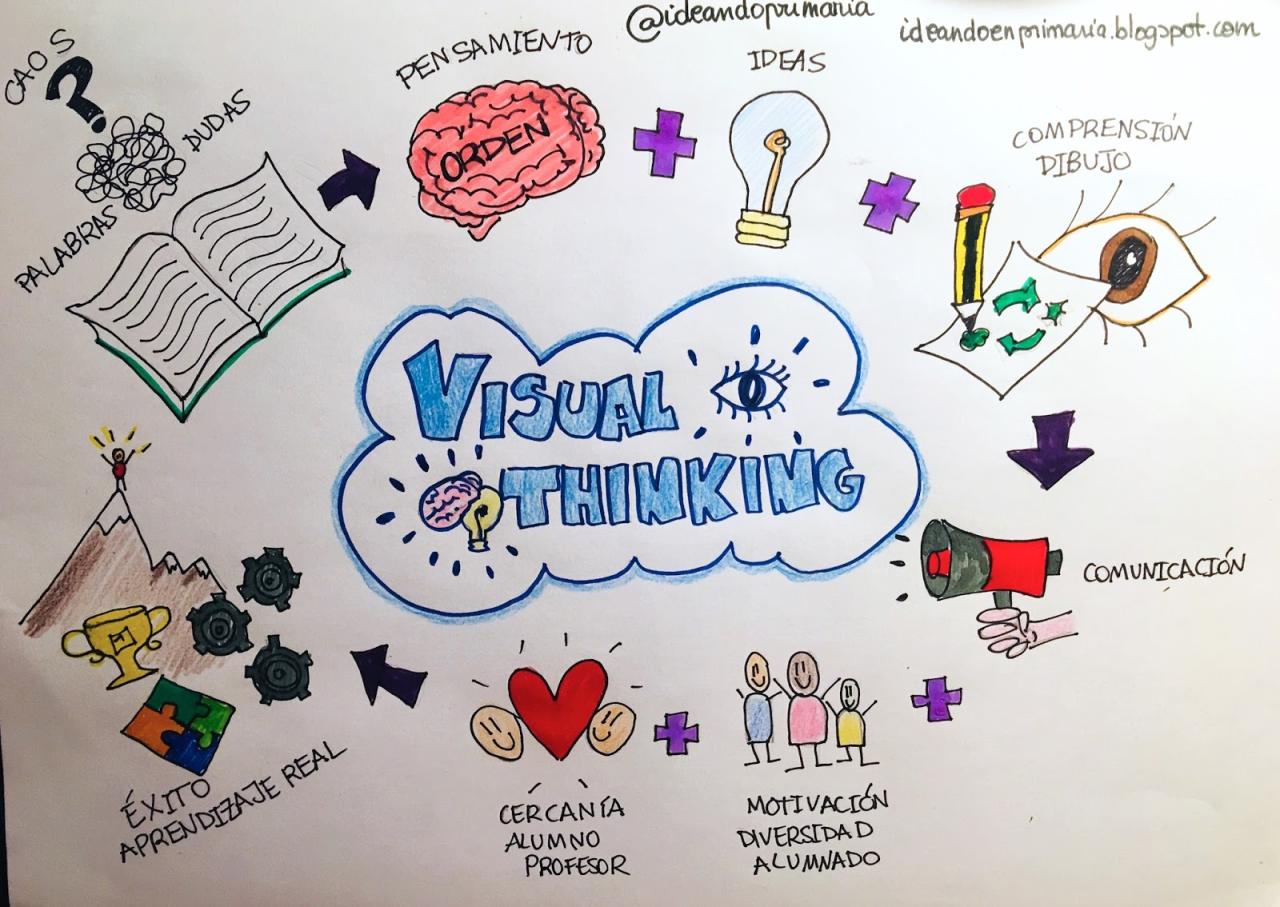 @ideandoprimaria
ideandoenprimaria.blogspot.com
CAOS
?
DUDAS
PALABRAS
PENSAMIENTO
ORDEN
IDEAS
COMPRENSIÓN
DIBUJO
VISUAL
THINKING
COMUNICACIÓN
MOTIVACIÓN
DIVERSIDAD
ALUMNADO
CERCANÍA
ALUMNO
PROFESOR
1
ÉXITO
APRENDIZAJE REAL